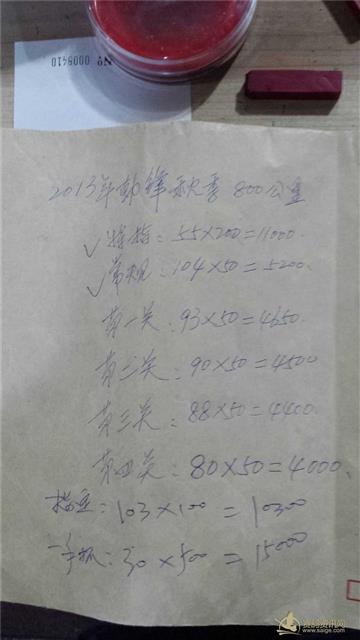 № 0005410
2013年郭锋秋季800公里
✓特指：55×200=11000.
✓常规：104×50=5200.
第一关：93×50=4650.
第二关：90×50=4500
第三关：88×50=4400.
第四关：80×50=4000.
103×100=10300
一手抓：30×500=15000
赛鸽资讯网
www.saige.com